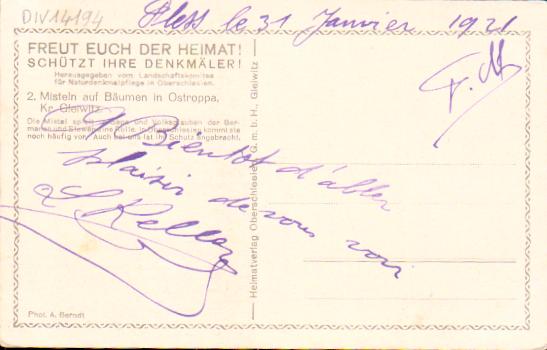 DIV14194
Pless le 31 Janvier 1921
FREUT EUCH DER HEIMAT!
SCHÜTZT IHRE DENKMÄLER!
Herausgegeben vom Landschaftskomitee
für Naturdenkmalpflege in Oberschlesien.
2. Misteln auf Bäumen in Ostroppa,
Kr. Gleiwitz.
Die Mistel spielt in Sage und Volksglauben der Ger-
manen und Slawen eine Rolle. In Oberschlesien kommt sie
noch häufig vor. Auch bei uns ist ihr Schutz angebracht.
F. M
A Bientot d'aller
plaisir de vous voir
Phot. A. Berndt
Heimatverlag Oberschlesien G. m. b. H., Gleiwitz